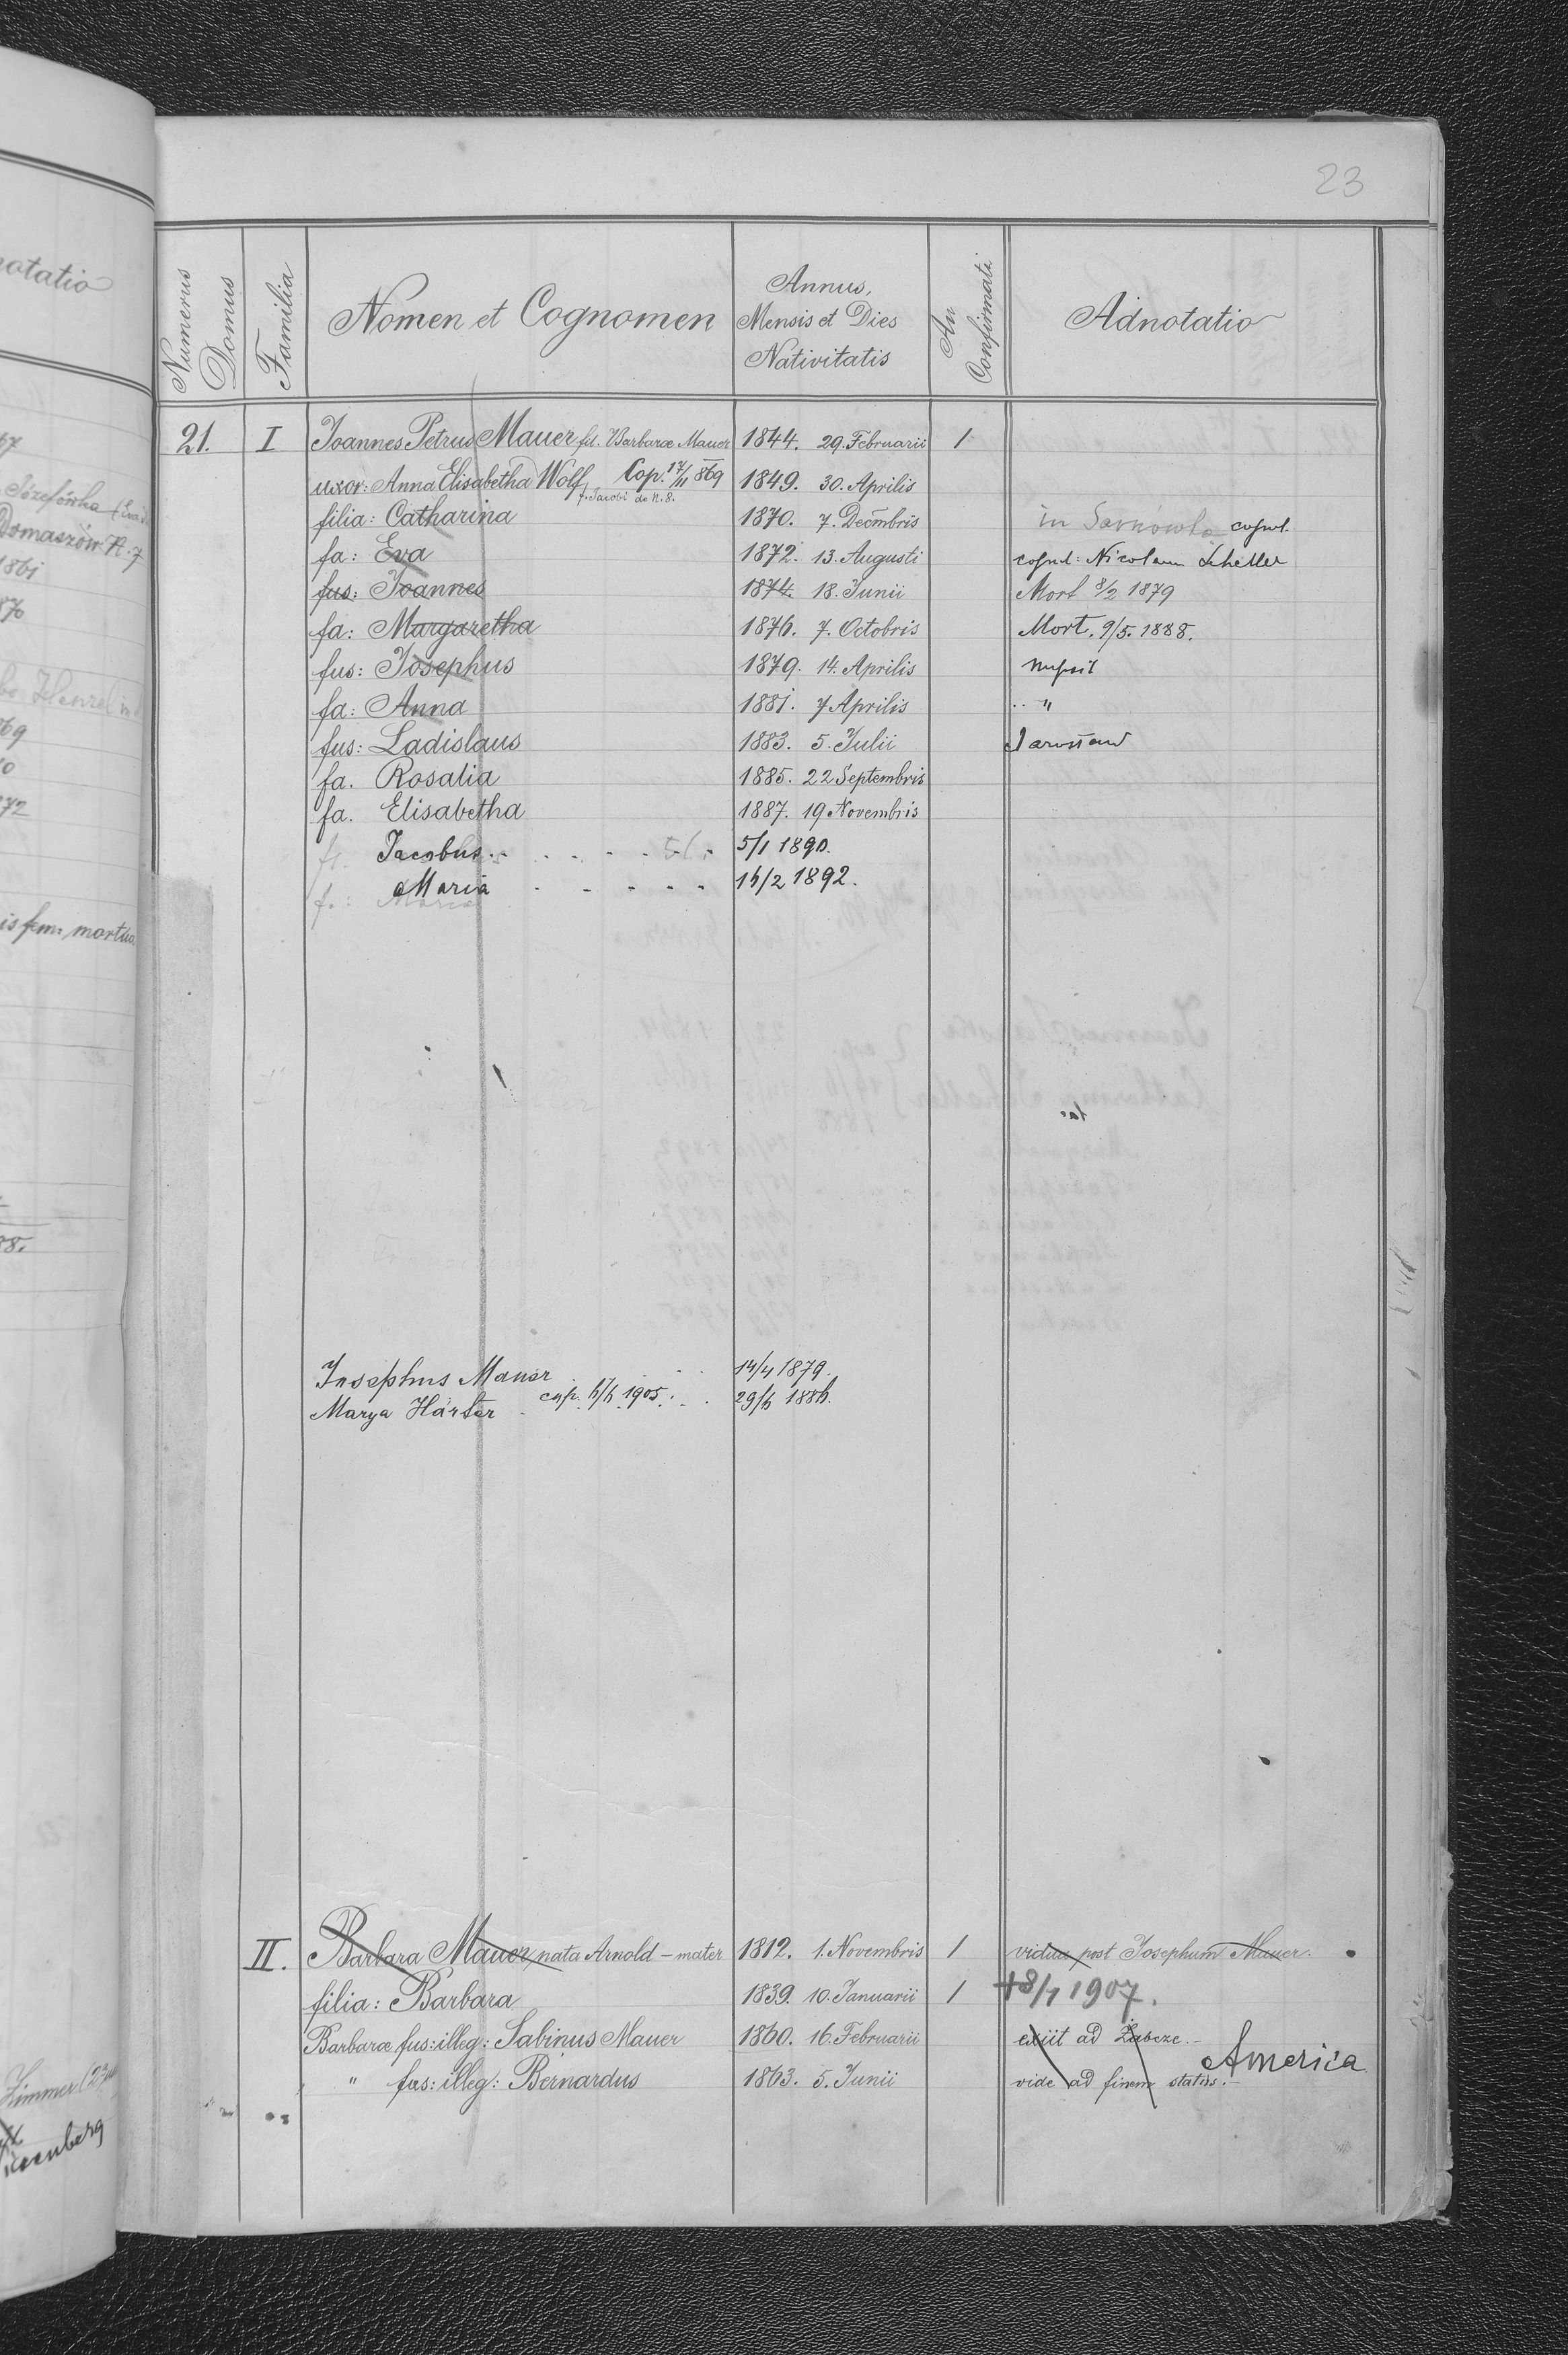 otatio
67
Józefówka (Eva
Domaszów N. 7
1861
870
be Henzel in
869
0
872
is fem: mortua
88.
Zimmer (23
enberg
23
Numerus Domus
Familia
Nomen et Cognomen
Annus, Mensis et Dies Nativitatis
An Confirmati
Adnotatio
21. I Joannes Petrus Mauer fil. Barbaræ Mauer 1844. 29. Februarii 1
uxor: Anna Elisabetha Wolf Cop. 17/11 869 1849. 30. Aprilis
f. Jacobi de N. 8.
filia: Catharina 1870. 7. Decmbris in copul.
fa: Eva 1872. 13. Augusti copul: Nicolaum Scheller
fus: Joannes 1874. 18. Junii Mort 8/2 1879
fa: Margaretha 1876. 7. Octobris Mort. 9/5. 1888.
fus: Josephus 1879. 14. Aprilis nupsit
fa: Anna 1881. 7 Aprilis .. "
fus: Ladislaus 1883. 5. Julii Jarosław
fa. Rosalia 1885. 22 Septembris
fa. Elisabetha 1887. 19 Novembris
fs. Jacobus 5/1 5/1 1890.
fa: Maria 16/2 1892.
Maria
Josephus Mauer 14/4 1879.
cop. 6/6 1905.
Marya Harter 29/6 1886.
II. Barbara Mauer, nata Arnold – mater 1812. 1. Novembris 1 vidua post Josephum Mauer.
filia: Barbara 1839. 10. Januarii 1 +8/1 1907.
Barbaræ fus: illeg: Sabinus Mauer 1860. 16. Februarii exiit ad Zabcze.–
America
" fus: illeg: Bernardus 1863. 5. Junii vide ad finem status.–